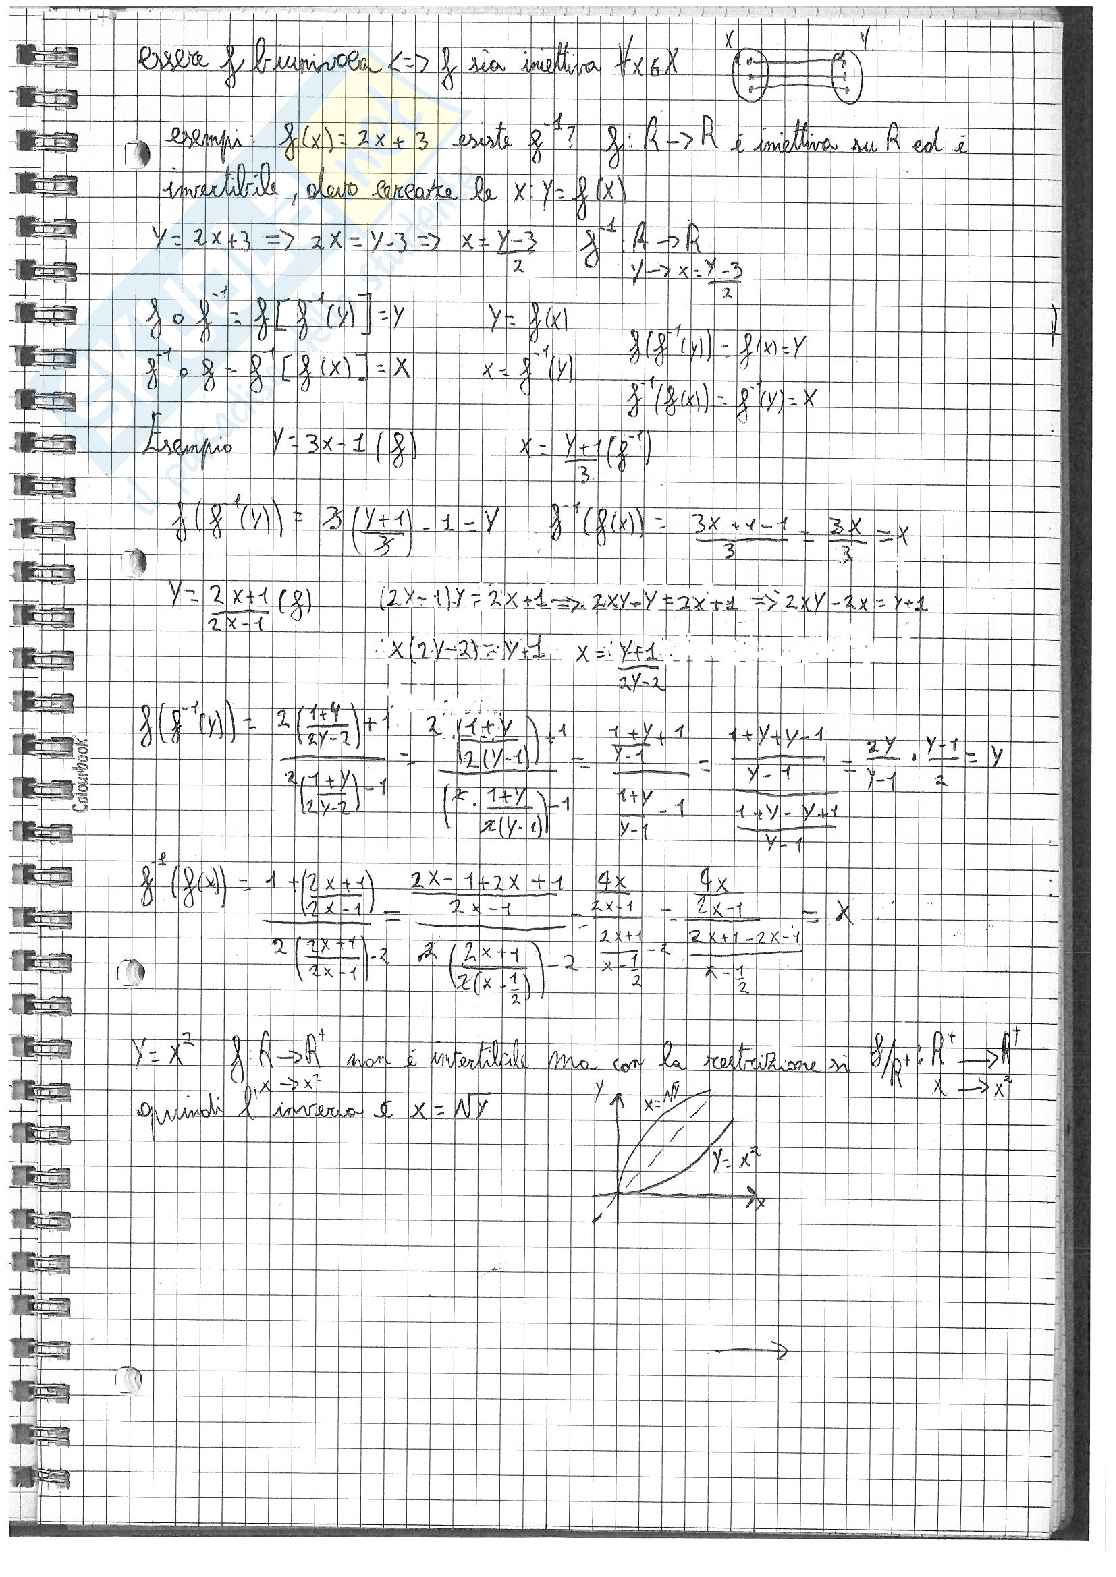 essere f biunivoca <=> f sia iniettiva ∀x∈X
X Y
esempi: f(x) = 2x+3 esiste f⁻¹? f: R → R è iniettiva su R ed è
invertibile, devo cercare le x: y = f(x)
y = 2x+3 => 2x = y-3 => x = (y-3)/2 f⁻¹: R → R
y → x = (y-3)/2
f ∘ f⁻¹ = f[f⁻¹(y)] = y y = f(x)
f(f⁻¹(y)) = f(x) = y
f⁻¹ ∘ f = f⁻¹[f(x)] = x x = f⁻¹(y)
f⁻¹(f(x)) = f⁻¹(y) = x
Esempio y = 3x-1 (f) x = (y+1)/3 (f⁻¹)
f(f⁻¹(y)) = 3((y+1)/3) - 1 = y f⁻¹(f(x)) = (3x+1-1)/3 = 3x/3 = x
y = (2x+1)/(2x-1) (f) (2x-1)y = 2x+1 => 2xy-y = 2x+1 => 2xy-2x = y+1
x(2y-2) = y+1 x = (y+1)/(2y-2)
f(f⁻¹(y)) = (2((1+y)/(2y-2))+1)/(2((1+y)/(2y-2))-1) = (2·((1+y)/(2(y-1)))+1)/((2·(1+y)/(2(y-1)))-1) = ((1+y)/(y-1)+1)/((1+y)/(y-1)-1) = ((1+y+y-1)/(y-1))/((1+y-y+1)/(y-1)) = 2y/(y-1) · (y-1)/2 = y
f⁻¹(f(x)) = (1+((2x+1)/(2x-1)))/(2((2x+1)/(2x-1))-2) = ((2x-1+2x+1)/(2x-1))/(2((2x+1)/(2(x-1/2)))-2) = (4x/(2x-1))/((2x+1)/(x-1/2)-2) = (4x/(2x-1))/((2x+1-2x-1)/(x-1/2)) = x
y = x² f: R → R⁺ non è invertibile ma con la restrizione si f/R⁺: R⁺ → R⁺
x → x² x → x²
quindi l'inversa è x = √y
y x=√y
y = x²
x
Colourbook